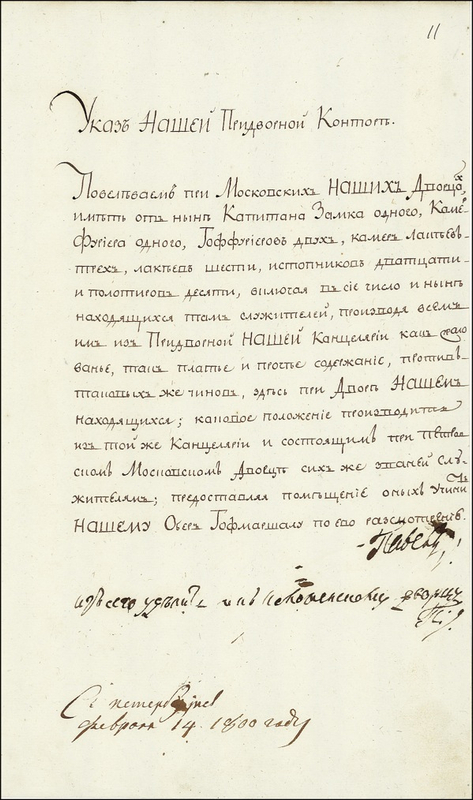 11
Указъ НАШЕЙ Придворной Конторѣ.
Повелѣваемъ при Московскихъ НАШИХЪ Дворцахъ,
имѣть отъ нынѣ Капитана Замка одного, Каме-
Фурiера одного, Гоффурiеровъ двухъ, камеръ лакѣевъ-
трехъ, лакѣевъ шести, истопниковъ дватцати-
и полотеровъ десяти, включая въ сiе число и нынѣ
находящихся тамъ служителей, производя всемъ
имъ изъ Придворной НАШЕЙ Канцелярiи какъ жало
ванье, такъ платье и протчее содержанiе, противъ-
таковыхъ же чиновъ, здѣсь при Дворѣ НАШЕМЪ
находящихся; каковое положенiе производить
изъ той же Канцелярiи и состоящимъ при Петров
скомъ Московскомъ Дворцѣ сихъ же званей слу-
жителямъ; предоставляя помѣщенiе оныхъ учинить
НАШЕМУ Оберъ Гофмаршалу по его разсмотренiю.
Павелъ
изъ сего числа и въ дворцѣ
С: петербургъ
февраля 14. 1800 году